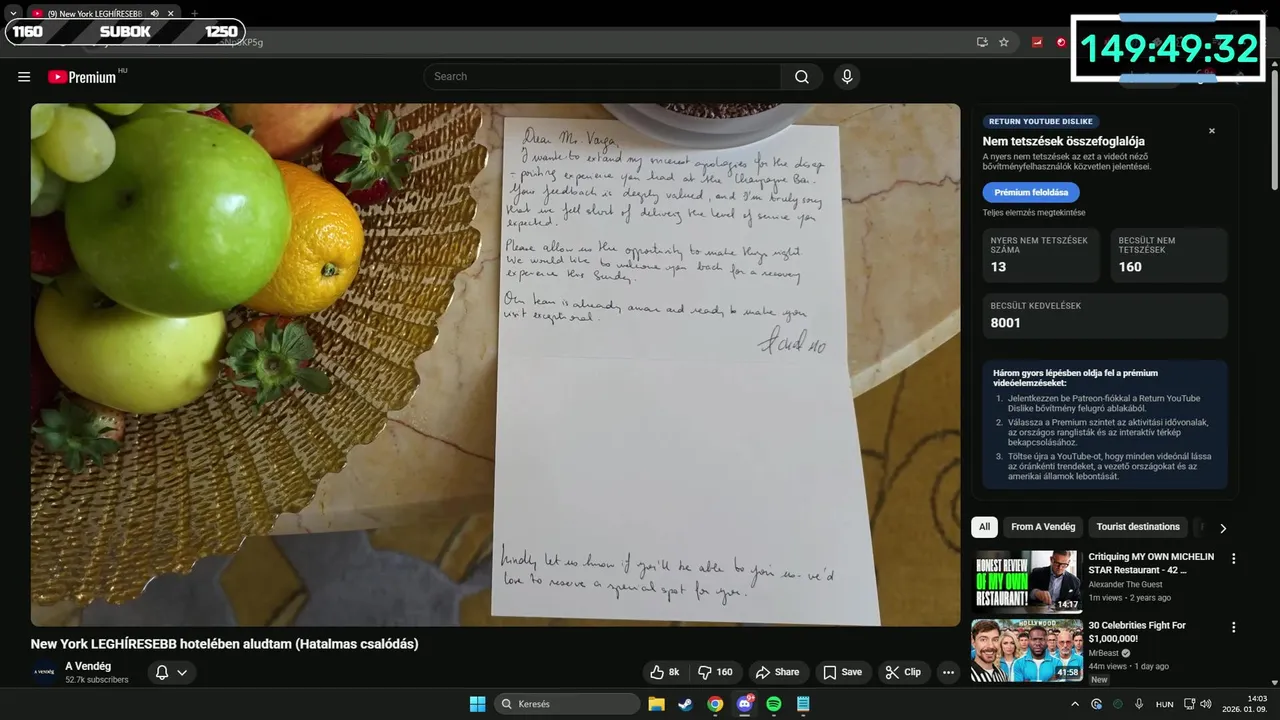 (9) New York LEGHÍRESEBB
1160 SUBOK 1250
149:49:32
Premium HU
Search
Dear Mr. Varga,
I want to extend my sincere apologies for the disap
- pointing experience you had at the Champagne Bar.
Your feedback is deeply valued, and I'm truly sorry
that we fell short of delivering the level of service you
expected.
Please allow us the opportunity to make things right
We would like to welcome you back for a recovery
experience this Sunday.
Our team is already aware and ready to make you
visit exceptional.
Kindly let us know if you'll be able to join us - we'd
love to reserve a special spot for you.
RETURN YOUTUBE DISLIKE
Nem tetszések összefoglalója
A nyers nem tetszések az ezt a videót néző
bővítményfelhasználók közvetlen jelentései.
Prémium feloldása
Teljes elemzés megtekintése
NYERS NEM TETSZÉSEK
SZÁMA
13
BECSÜLT NEM
TETSZÉSEK
160
BECSÜLT KEDVELÉSEK
8001
Három gyors lépésben oldja fel a prémium
videóelemzéseket:
1. Jelentkezzen be Patreon-fiókkal a Return YouTube
Dislike bővítmény felugró ablakából.
2. Válassza a Premium szintet az aktivitási idővonalak,
az országos ranglisták és az interaktív térkép
bekapcsolásához.
3. Töltse újra a YouTube-ot, hogy minden videónál lássa
az óránkénti trendeket, a vezető országokat és az
amerikai államok lebontását.
All From A Vendég Tourist destinations
HONEST REVIEW OF MY OWN RESTAURANT!
14:17
Critiquing MY OWN MICHELIN
STAR Restaurant - 42 ...
Alexander The Guest
1m views • 2 years ago
HOLLYWOOD
41:58
30 Celebrities Fight For
$1,000,000!
MrBeast
44m views • 1 day ago
New
New York LEGHÍRESEBB hotelében aludtam (Hatalmas csalódás)
A VENDÉG
A Vendég
52.7k subscribers
8k 160 Share Save Clip
Keresés
HUN
14:03
2026. 01. 09.